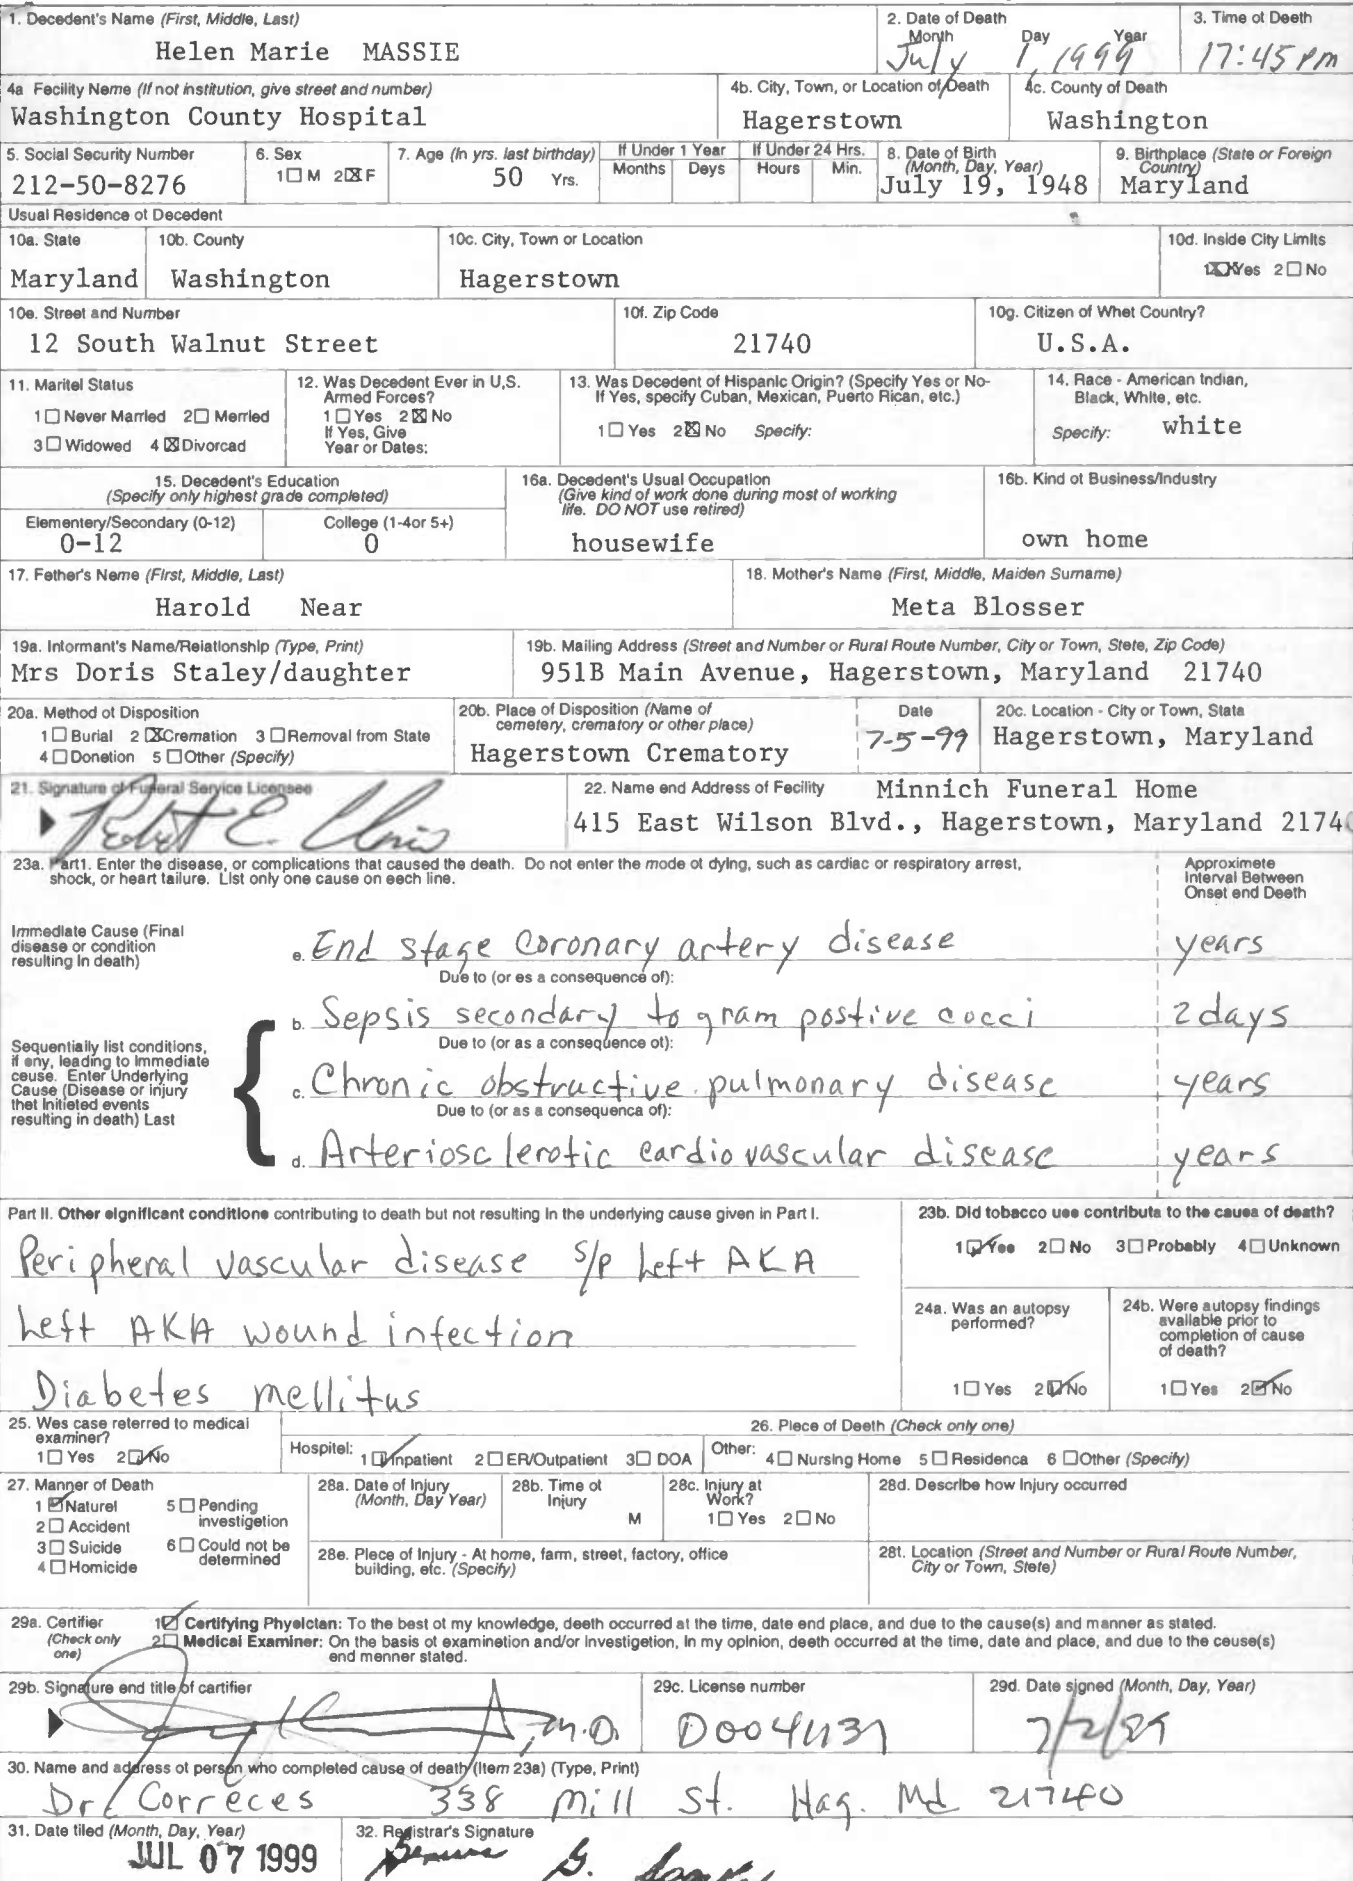 1. Decedent's Name (First, Middle, Last)
Helen Marie MASSIE
2. Date of Death
Month Day Year
July 1, 1999
3. Time ot Deeth
17:45 PM
4a Fecility Neme (If not institution, give street and number)
Washington County Hospital
4b. City, Town, or Location of Death
Hagerstown
4c. County of Death
Washington
5. Social Security Number
212-50-8276
6. Sex
1☐ M 2☒ F
7. Age (In yrs. last birthday)
50 Yrs.
If Under 1 Year
Months Deys
If Under 24 Hrs.
Hours Min.
8. Date of Birth
(Month, Day, Year)
July 19, 1948
9. Birthplace (State or Foreign
Country)
Maryland
Usual Residence ot Decedent
10a. State
Maryland
10b. County
Washington
10c. City, Town or Location
Hagerstown
10d. Inside City Limits
1☒ Yes 2☐ No
10e. Street and Number
12 South Walnut Street
10f. Zip Code
21740
10g. Citizen of Whet Country?
U.S.A.
11. Maritel Status
1☐ Never Married 2☐ Merried
3☐ Widowed 4☒ Divorcad
12. Was Decedent Ever in U,S.
Armed Forces?
1☐ Yes 2☒ No
If Yes, Give
Year or Dates:
13. Was Decedent of Hispanic Origin? (Specify Yes or No-
If Yes, specify Cuban, Mexican, Puerto Rican, etc.)
1☐ Yes 2☒ No Specify:
14. Race - American Indian,
Black, White, etc.
Specify: white
15. Decedent's Education
(Specify only highest grade completed)
Elementery/Secondary (0-12)
0-12
College (1-4or 5+)
0
16a. Decedent's Usual Occupation
(Give kind of work done during most of working
life. DO NOT use retired)
housewife
16b. Kind ot Business/Industry
own home
17. Fether's Neme (First, Middle, Last)
Harold Near
18. Mother's Name (First, Middle, Maiden Surname)
Meta Blosser
19a. Informant's Name/Relationship (Type, Print)
Mrs Doris Staley/daughter
19b. Mailing Address (Street and Number or Rural Route Number, City or Town, Stete, Zip Code)
951B Main Avenue, Hagerstown, Maryland 21740
20a. Method ot Disposition
1☐ Burial 2☒ Cremation 3☐ Removal from State
4☐ Donetion 5☐ Other (Specify)
20b. Place of Disposition (Name of
cemetery, crematory or other place)
Hagerstown Crematory
Date
7-5-99
20c. Location - City or Town, Stata
Hagerstown, Maryland
21. Signature of Funeral Service Licensee
Robert E.
22. Name end Address of Fecility Minnich Funeral Home
415 East Wilson Blvd., Hagerstown, Maryland 2174
23a. Part1. Enter the disease, or complications that caused the death. Do not enter the mode ot dying, such as cardiac or respiratory arrest,
shock, or heart tailure. List only one cause on eech line.
Approximete
Interval Between
Onset end Deeth
Immediate Cause (Final
disease or condition
resulting In death)
e. End stage coronary artery disease years
Due to (or es a consequence of):
b. Sepsis secondary to gram postive cocci 2 days
Due to (or as a consequence ot):
Sequentially list conditions,
if eny, leading to immediate
ceuse. Enter Underlying
Cause (Disease or injury
thet Initieted events
resulting in death) Last
c. Chronic obstructive pulmonary disease years
Due to (or as a consequenca of):
d. Arteriosclerotic cardiovascular disease years
Part II. Other significant conditione contributing to death but not resulting in the underlying cause given in Part I.
Peripheral vascular disease s/p Left AKA
Left AKA wound infection
Diabetes mellitus
23b. Did tobacco uee contributa to the causa of death?
1☑ Yee 2☐ No 3☐ Probably 4☐ Unknown
24a. Was an autopsy
performed?
1☐ Yes 2☑ No
24b. Were autopsy findings
available prior to
completion of cause
of death?
1☐ Yes 2☑ No
25. Wes case reterred to medical
examiner?
1☐ Yes 2☑ No
26. Plece of Deeth (Check only one)
Hospitel: 1☑ Inpatient 2☐ ER/Outpatient 3☐ DOA
Other: 4☐ Nursing Home 5☐ Residenca 6☐ Other (Specify)
27. Manner of Death
1☑ Naturel 5☐ Pending
investigetion
2☐ Accident
3☐ Suicide 6☐ Could not be
determined
4☐ Homicide
28a. Date of Injury
(Month, Day Year)
28b. Time ot
Injury
M
28c. Injury at
Work?
1☐ Yes 2☐ No
28d. Describe how Injury occurred
28e. Plece of Injury - At home, farm, street, factory, office
building, etc. (Specify)
28t. Location (Street and Number or Rural Route Number,
City or Town, Stete)
29a. Certifier
(Check only
one)
1☑ Certifying Phyeician: To the best ot my knowledge, deeth occurred at the time, date end place, and due to the cause(s) and manner as stated.
2☐ Medical Examiner: On the basis ot examinetion and/or Investigetion, In my opinion, deeth occurred at the time, date and place, and due to the ceuse(s)
end menner stated.
29b. Signeture end title of cartifier
M.D.
29c. License number
D0041131
29d. Date signed (Month, Day, Year)
7/2/99
30. Name and address ot person who completed cause of death (Item 23a) (Type, Print)
Dr Correces 338 Mill St. Hag. Md 21740
31. Date tiled (Month, Day, Year)
JUL 07 1999
32. Registrar's Signature
G.